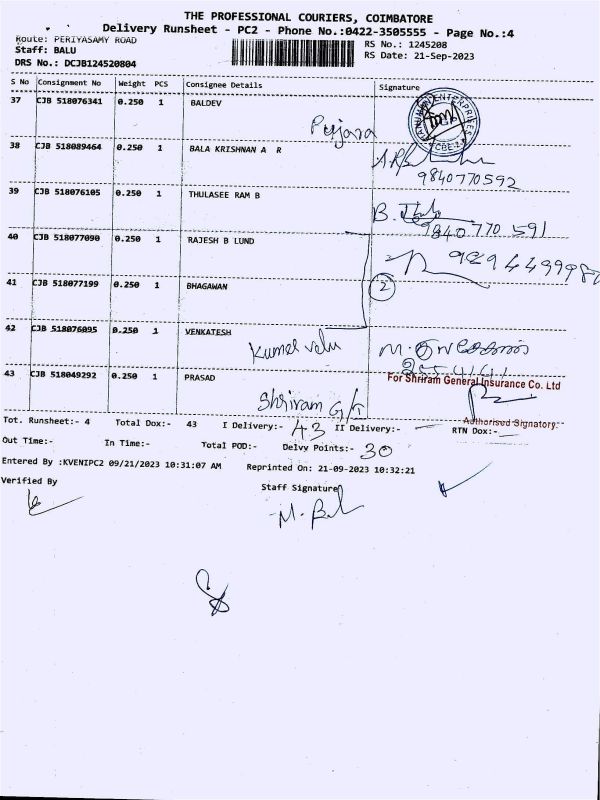 THE PROFESSIONAL COURIERS, COIMBATORE
Delivery Runsheet - PC2 - Phone No.:0422-3505555 - Page No.:4
Route: PERIYASAMY ROAD
RS No.: 1245208
Staff: BALU
RS Date: 21-Sep-2023
DRS No.: DCJB124520804
S No Consignment No Weight PCS Consignee Details Signature
37 CJB 518076341 0.250 1 BALDEV
Pujara
38 CJB 518089464 0.250 1 BALA KRISHNAN A R
9840770592
39 CJB 518076105 0.250 1 THULASEE RAM B
9840770591
40 CJB 518077090 0.250 1 RAJESH B LUND
41 CJB 518077199 0.250 1 BHAGAWAN
2
42 CJB 518076095 0.250 1 VENKATESH
Kumar velu
43 CJB 518049292 0.250 1 PRASAD
For Shriram General Insurance Co. Ltd
Shriram G/I
Authorised Signatory.
Tot. Runsheet:- 4 Total Dox:- 43 I Delivery:- 43 II Delivery:- RTN Dox:-
Out Time:- In Time:- Total POD:- Delvy Points:- 30
Entered By :KVENIPC2 09/21/2023 10:31:07 AM Reprinted On: 21-09-2023 10:32:21
Verified By Staff Signature